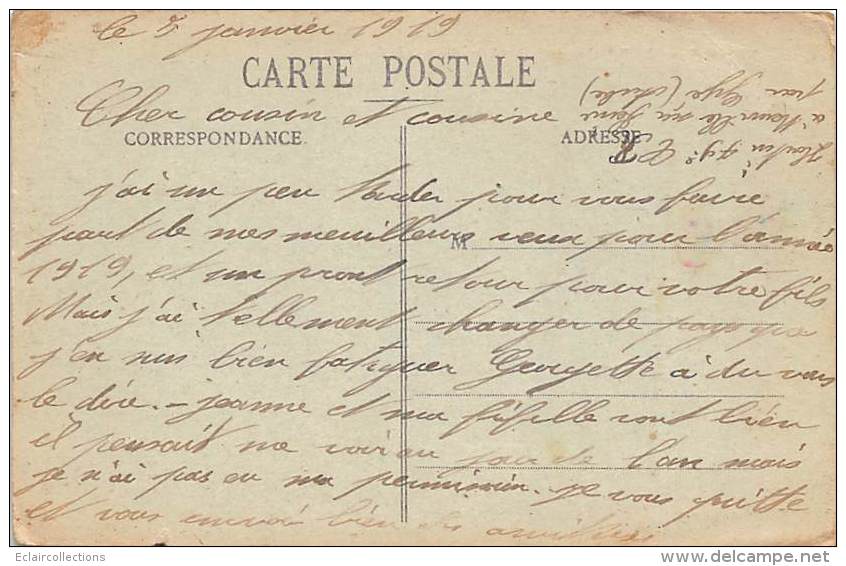 le 5 janvier 1919
CARTE POSTALE
Cher cousin et cousine
CORRESPONDANCE
ADRESSE
à sur Seine
par Gyé (Aube)
j'ai un peu tarder pour vous faire
part de mes meuilleurs veux pour l'année
M
1919, et un pront retour pour votre fils
Mais j'ai tellement changer de pays que
j'en suis bien fatiguer Georgette à du vous
le dire. - jeanne et ma fifille vont bien
il pensait me voir au jour de l'an mais
je n'ai pas eu ma permission. Je vous quitte
et vous envoi bien des amitiés
Eclaircollections
delcampe.net